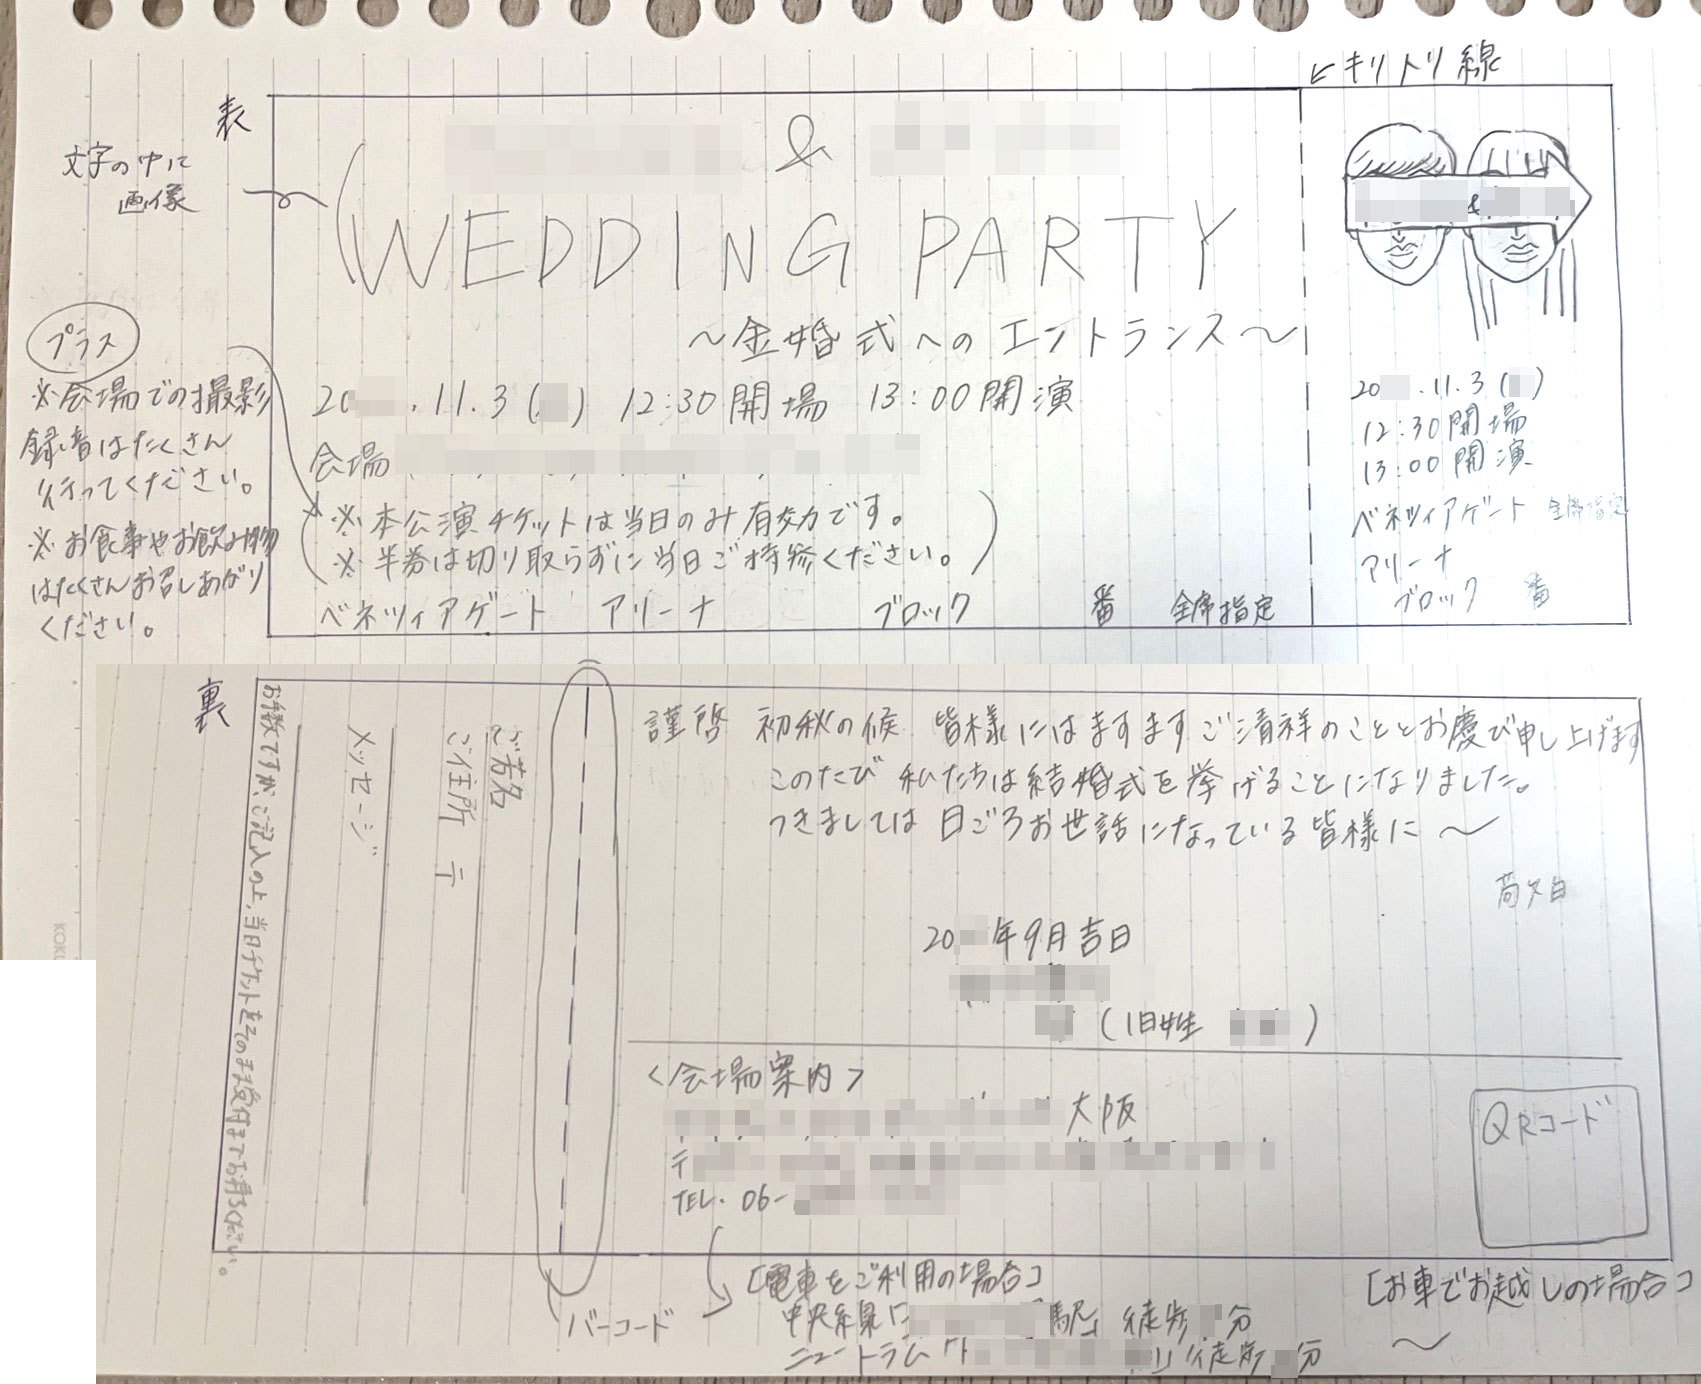 表
← キリトリ線
文字の中に
画像
&
WEDDING PARTY
〜金婚式へのエントランス〜
20 .11.3( ) 12:30開場 13:00開演
会場
※本公演チケットは当日のみ有効です。
※半券は切り取らずに当日ご持参ください。
ベネツィアゲート アリーナ ブロック 番 全席指定
プラス
※会場での撮影
録音はたくさん
行ってください。
※お食事やお飲み物
はたくさんお召しあがり
ください。
&
20 .11.3( )
12:30開場
13:00開演
ベネツィアゲート 全席指定
アリーナ
ブロック 番
裏
謹啓 初秋の候 皆様にはますますご清祥のこととお慶び申し上げます
このたび 私たちは結婚式を挙げることになりました。
つきましては 日ごろお世話になっている皆様に〜
20 年9月吉日
(旧姓 )
<会場案内>
大阪
〒
TEL. 06-
QRコード
[電車をご利用の場合]
中央線「 駅」徒歩 分
ニュートラム「 」徒歩 分
[お車でお越しの場合]
〜
バーコード
ご芳名
ご住所 〒
メッセージ
お手数ですが、ご記入の上、当日チケットをそのまま受付までお持ちください。
KOKU